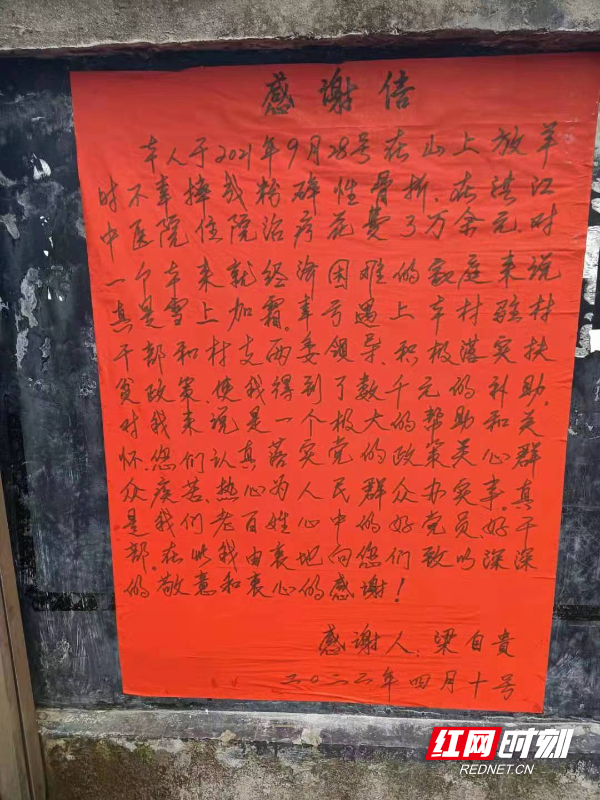 感谢信
本人于2021年9月28号在山上放羊
时不幸摔成粉碎性骨折.在洪江
中医院住院治疗花费了万余元.对
一个本来就经济困难的家庭来说
真是雪上加霜.幸亏遇上本村驻村
干部和村支两委领导.积极落实扶
贫政策.使我得到了数千元的补助.
对我来说是一个极大的帮助和关
怀.您们认真落实党的政策关心群
众疾苦.热心为人民群众办实事.真
是我们老百姓心中的好党员.好干
部.在此我由衷地向您们致以深深
的敬意和衷心的感谢!
感谢人:梁自贵
二〇二二年四月十号
红网时刻
REDNET.CN